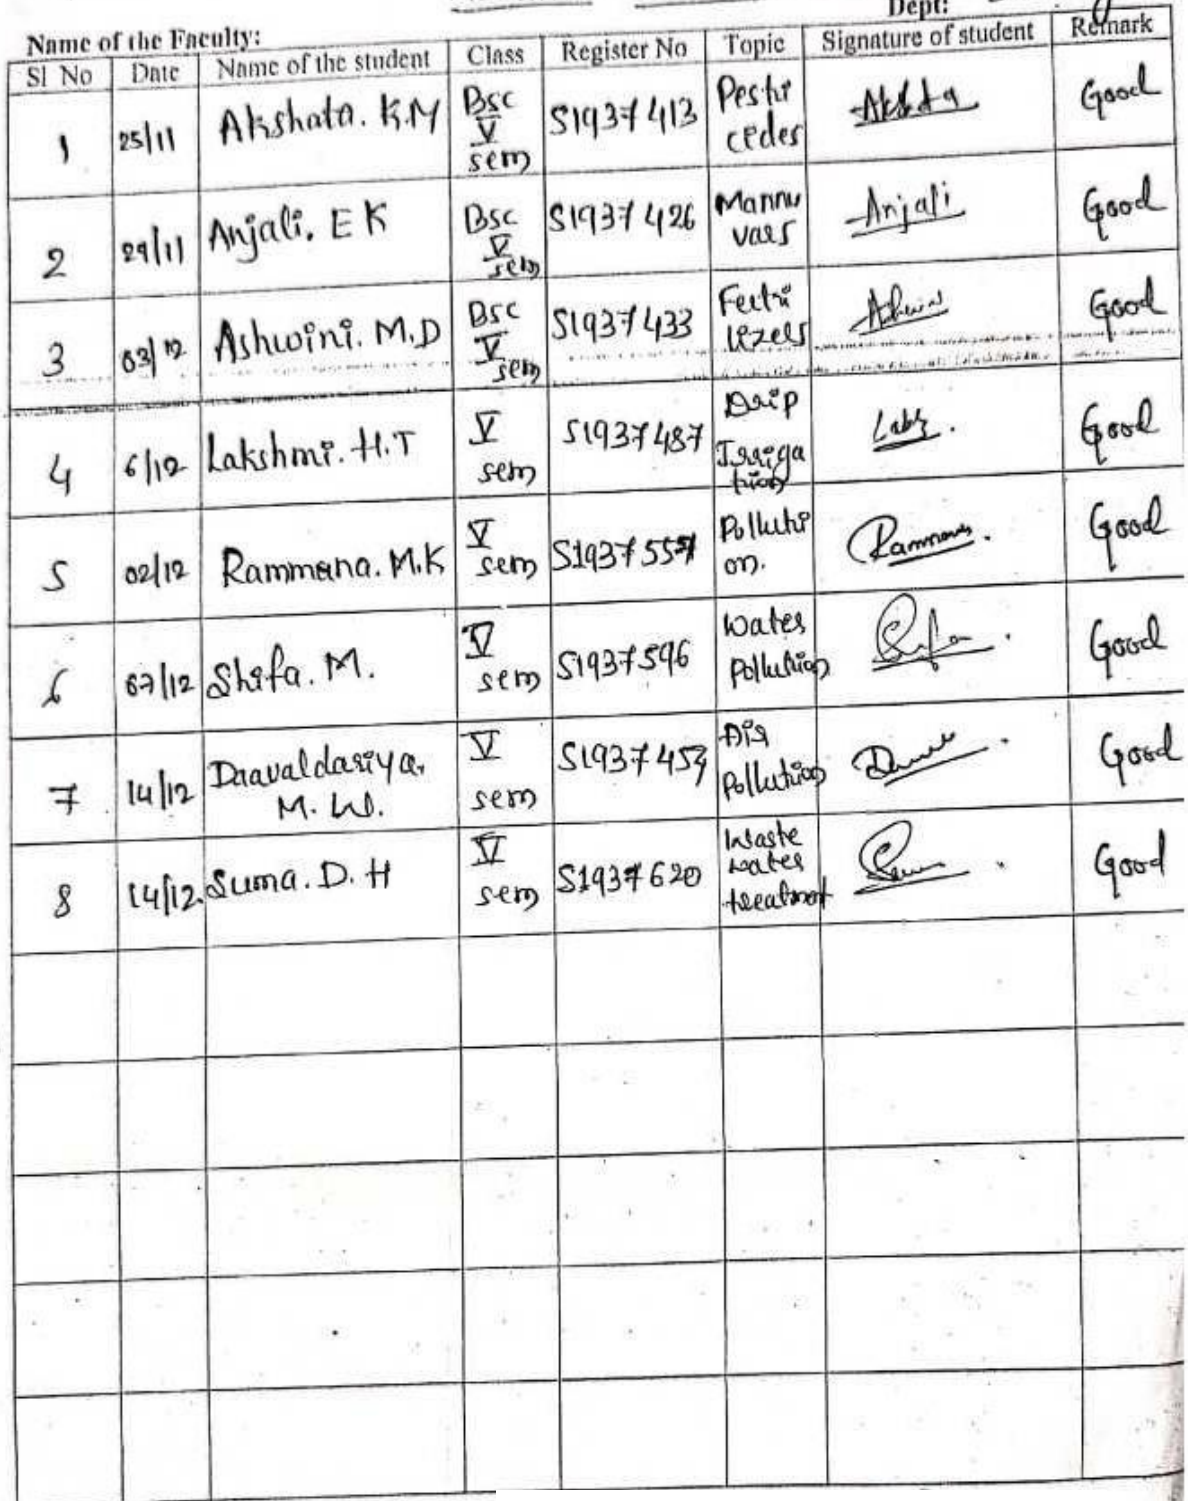 Dept:
Name of the Faculty:
Sl No Date Name of the student Class Register No Topic Signature of student Remark
1 25/11 Akshata. K.M Bsc V sem S1937413 Pesti cedes Good
2 29/11 Anjali. E K Bsc V sem S1937426 Mannu vars Anjali Good
3 03/12 Ashwini. M.D Bsc V sem S1937433 Fertri lizers Good
4 6/12 Lakshmi. H.T V sem S1937487 Drip Irriga tion Good
5 02/12 Rammana. M.K V sem Polluti on. Good
6 07/12 Shifa. M. V sem S1937596 Water Pollution Good
7 14/12 Daavaldariya. M. W. V sem Air Pollution Good
8 14/12. Suma. D. H V sem S1937620 Waste water treatment Good